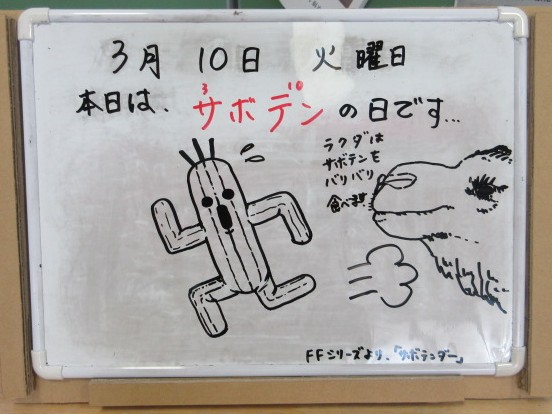 3月 10日 火曜日
本日は、サボテンの日です…
3 10
ラクダは
サボテンを
バリバリ
食べます!
FFシリーズより、「サボテンダー」